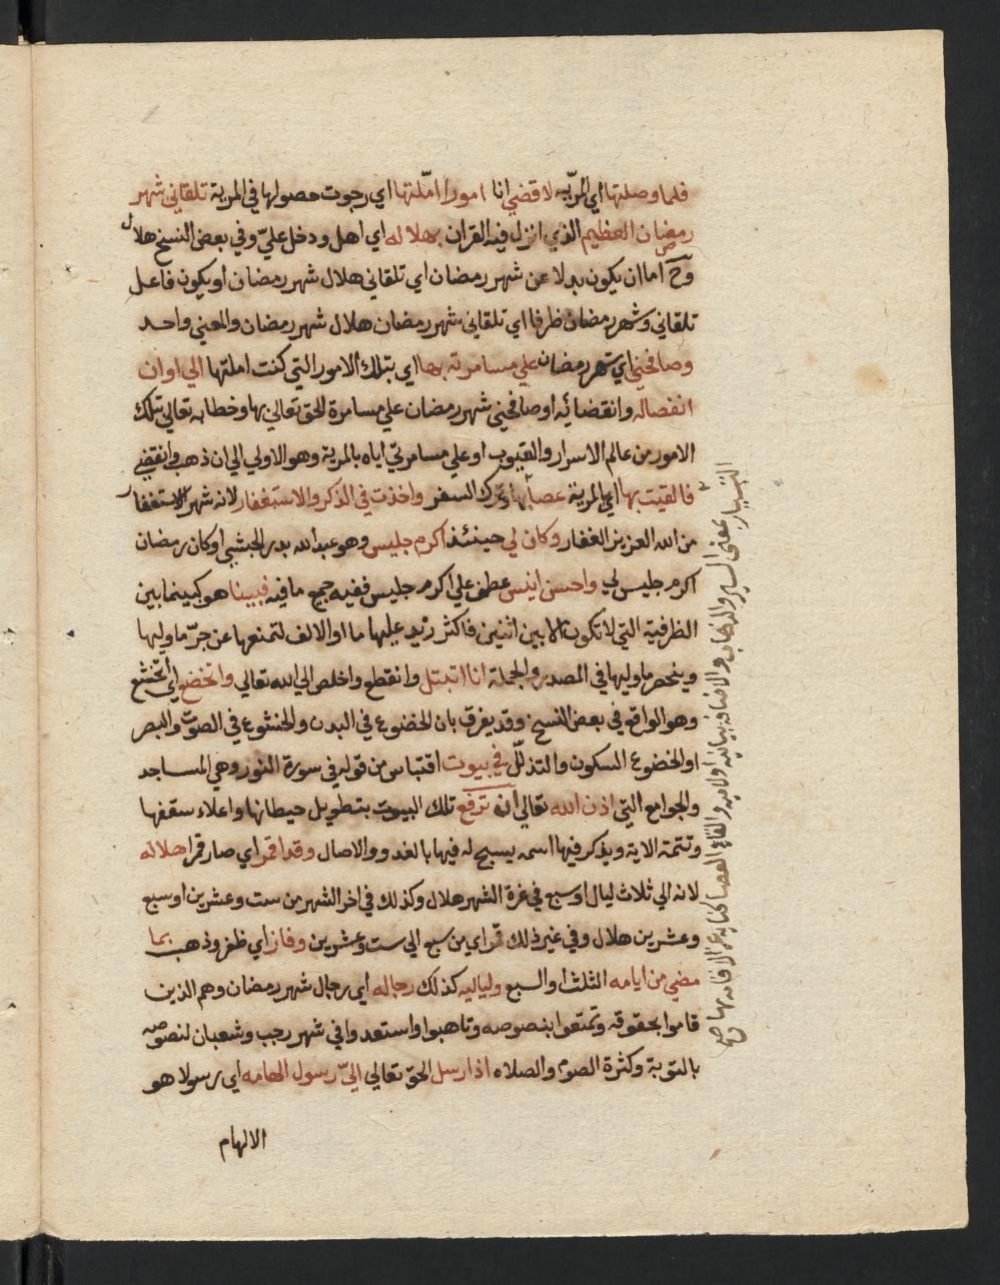 فلما وصلتها اي المرية لاقضي انا امورا امّلتها اي رجوت حصولها في المرية تلقاني شهر
رمضان العظيم الذي انزل فيه القران بهلاله اي اهل ودخل عليّ وفي بعض النسخ هلال
وح اما ان يكون بدلا عن شهر رمضان اي تلقاني هلال شهر رمضان او يكون فاعل
تلقاني وشهر رمضان ظرفا اي تلقاني شهر رمضان هلال شهر رمضان والمعني واحد
وصافحني اي شهر رمضان علي مسامرته بها اي بتلك الامور التي كنت املتها الي اوان
انفصاله وانقضائه او صافحني شهر رمضان علي مسامرة الحق تعالي بها وخطابه تعالي بتلك
الامور من عالم الاسرار والغيوب او علي مسامرتي اياه بالمرية وهو الاولي الي ان ذهب وانقضي
فالقيت بها اي المرية عصا ترك السفر واخذت في الذكر والاستغفار لانه شهر الاستغفار
من الله العزيز الغفار وكان لي حينئذ اكرم جليس وهو عبد الله بدر الحبشي او كان رمضان
اكرم جليس لي واحسن انيس عطف علي اكرم جليس ففيه جميع ما فيه فبينا هو كبينما بين
الظرفية التي لا تكون الا بين اثنين فاكثر زيد عليها ما او الالف لتمنعها عن جرّ ما وليها
وينحصر ما وليها في المصدر والجملة انا اتبتل وانقطع واخلص الي الله تعالي واتخضع اي اتخشع
وهو الواقع في بعض النسخ وقد يفرق بان الخضوع في البدن والخشوع في الصوت والبصر
او الخضوع السكون والتذلّل في بيوت اقتباس من قوله في سورة النور وهي المساجد
والجوامع التي اذن الله تعالي ان ترفع تلك البيوت بتطويل حيطانها واعلاء سقفها
وتتمة الاية ويذكر فيها اسمه يسبح له فيها بالغدو والاصال وقد اقمر اي صار قمرا هلاله
لانه الي ثلاث ليال او سبع في غرة الشهر هلال وكذلك في اخر الشهر من ست وعشرين او سبع
وعشرين هلال وفي غير ذلك قمر اي من سبع الي ست وعشرين وفاز اي ظفر وذهب بما
مضي من ايامه الثلث او السبع ولياليه كذلك رجاله اي رجال شهر رمضان وهم الذين
قاموا بحقوقه وتمتعوا بنصوصه وتاهبوا واستعدوا في شهر رجب وشعبان لنصوصه
بالتوبة وكثرة الصوم والصلاه اذ ارسل الحق تعالي اليّ رسول الهامه اي رسولا هو
الالهام
التسيار بمعنى السير والذهاب والاضافة بيانيه اولاميه والقاء العصا كناية عن الاقامه بها صح